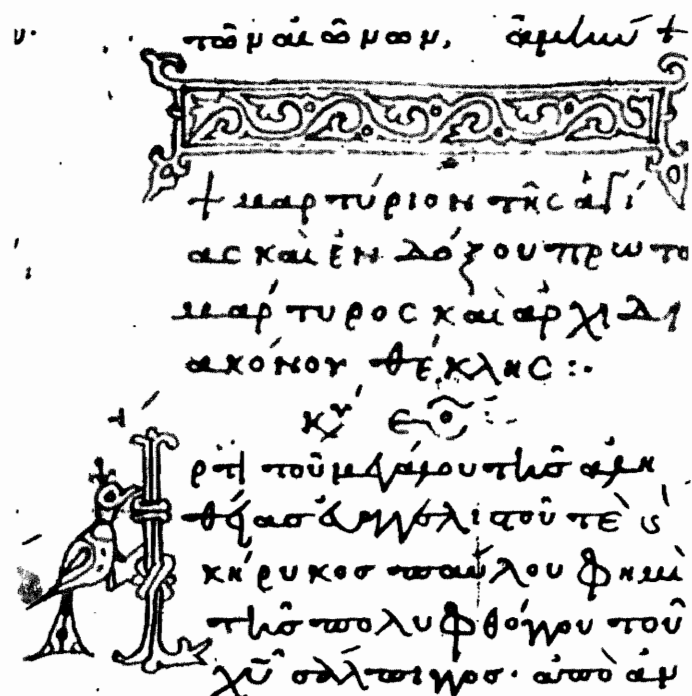 τῶν αἰώνων, ἀμήν +
+ μαρτύριον τῆς ἁγί
ας καὶ ἐνδόξου πρωτο
μάρτυρος καὶ ἀρχιδι
ακόνου θέκλης :·
Ἄρτϊ τοῦ μεγάλου τῆς ἀλη
θείας εὐαγγελιστοῦ τὲ ϗ
κήρυκος παύλου φημὶ
τῆς πολυφθόγγου τοῦ
χῦ σάλπιγγος· ἀπὸ ἀν